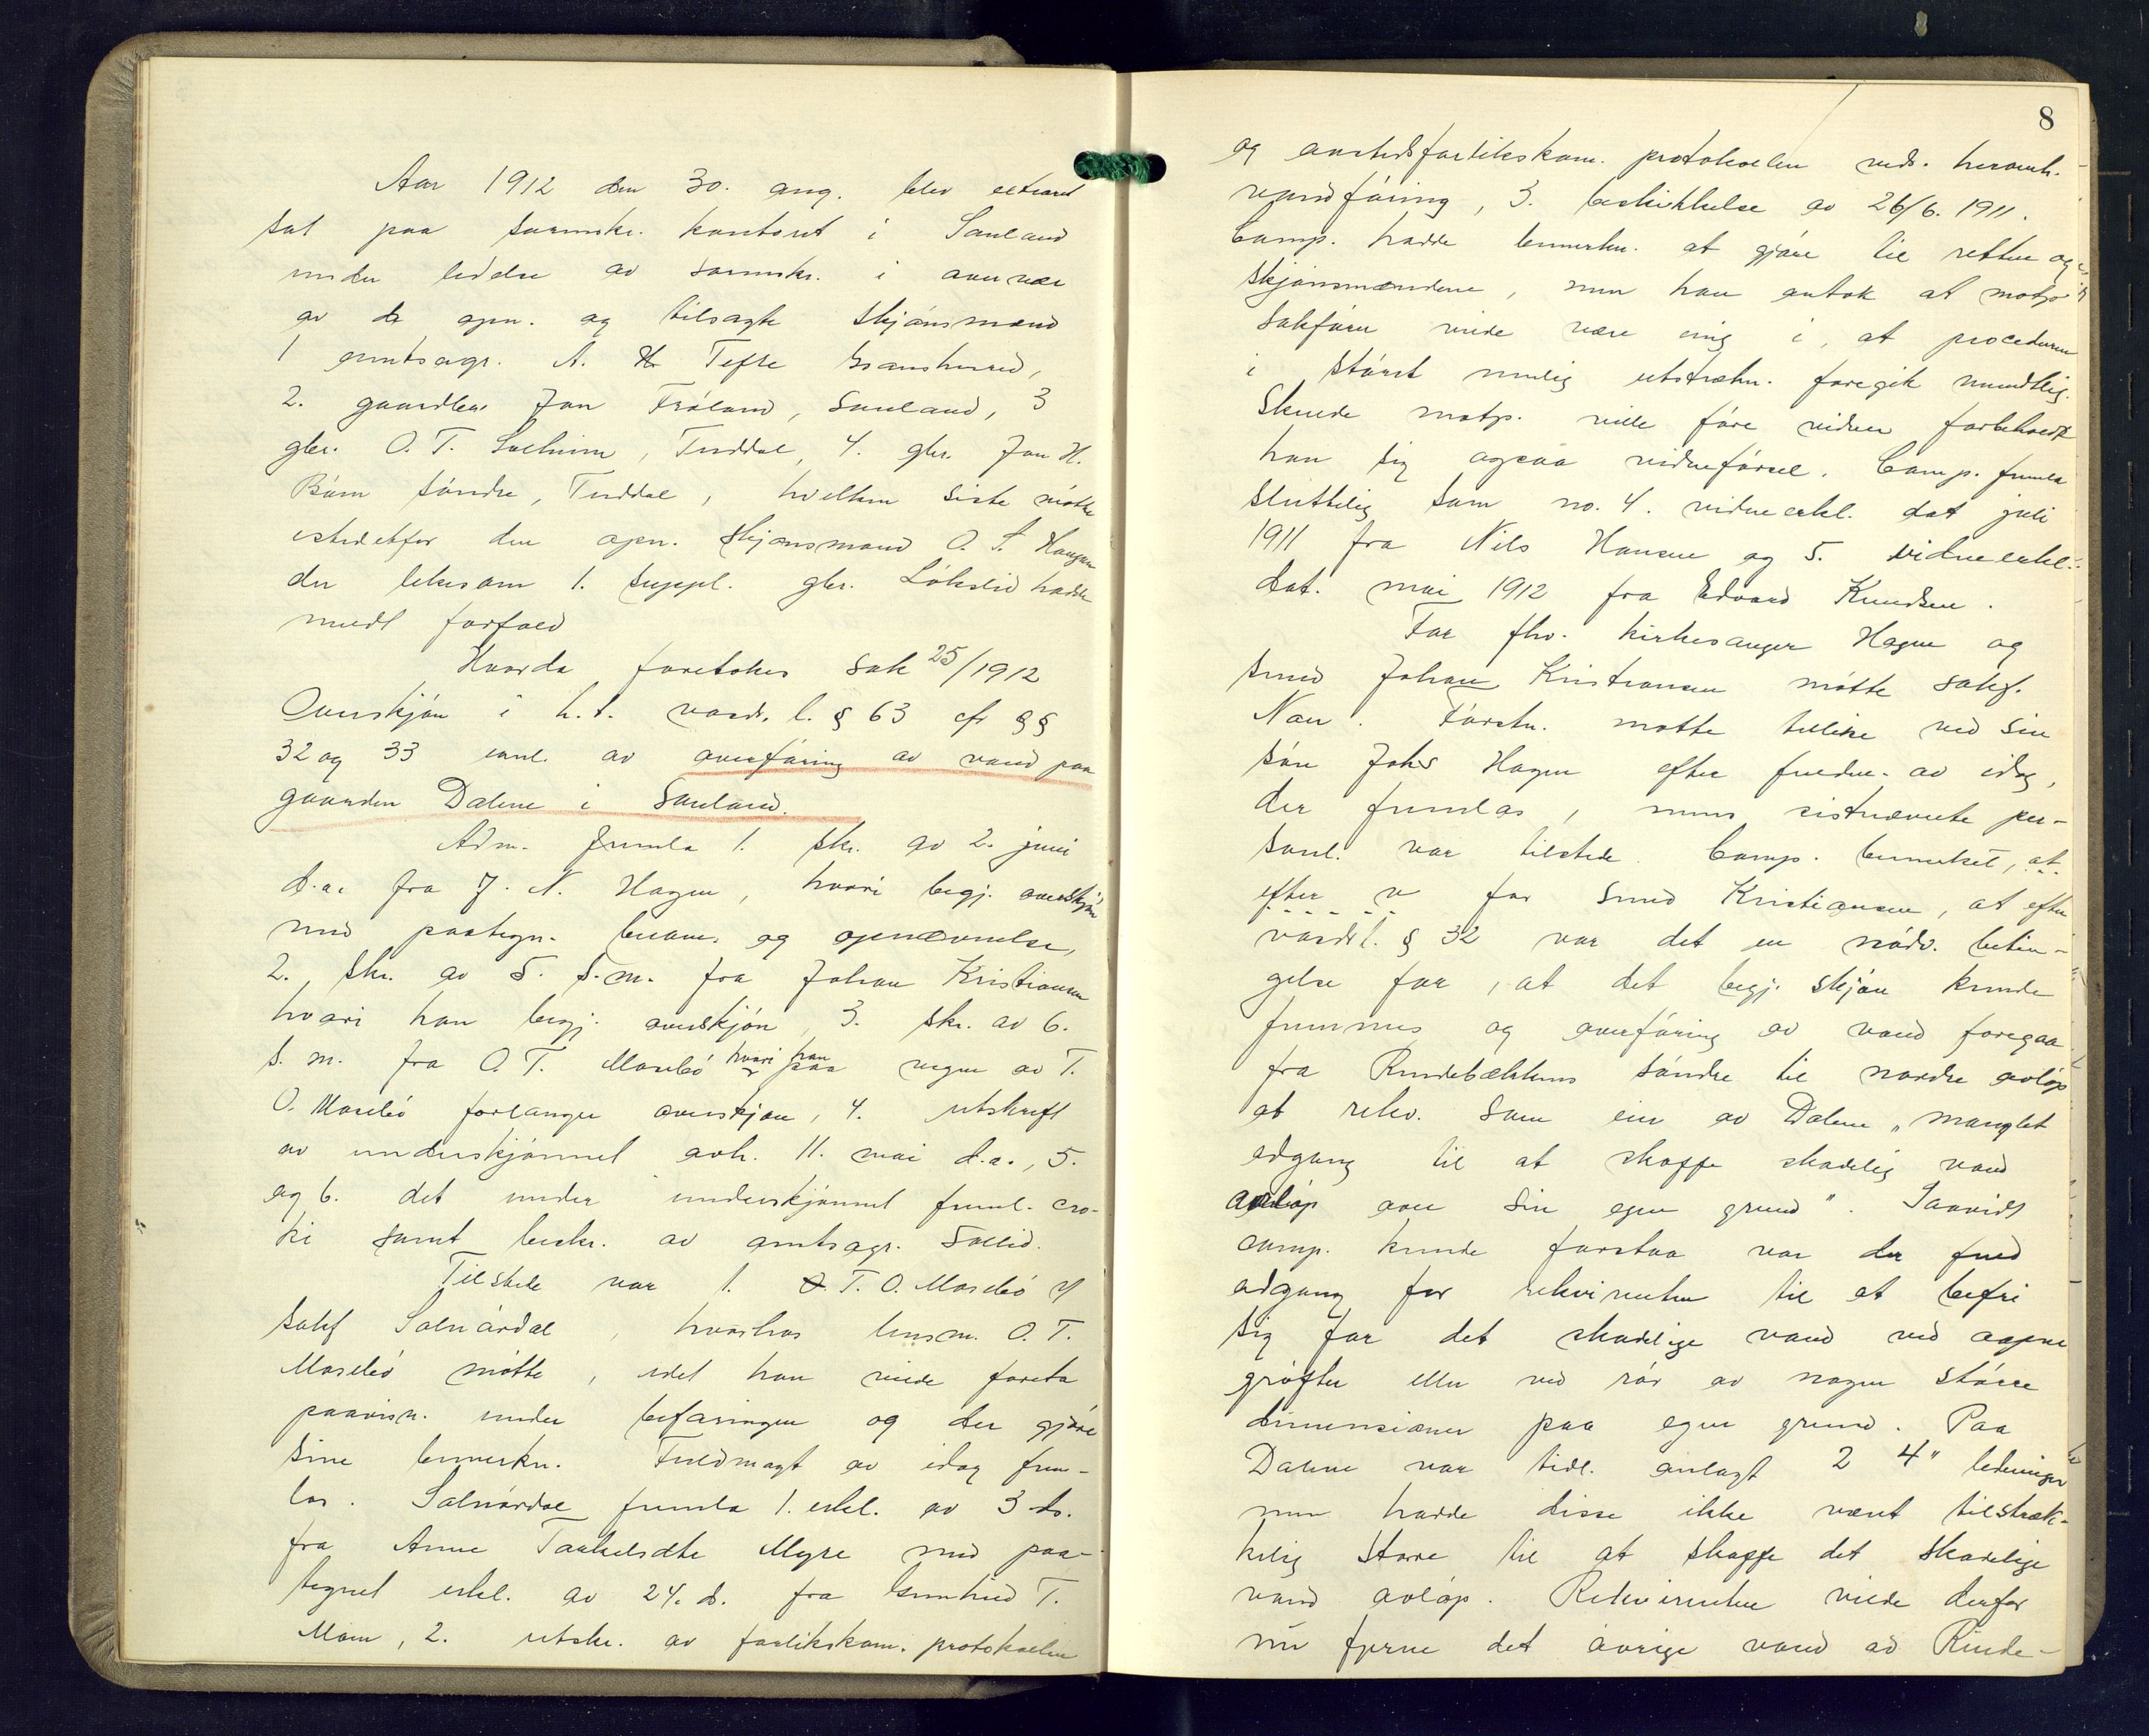 Aar 1912 den 30. aug. blev extraret
sat paa sorenskr. kontoret i Sauland
under ledelse av sorenskr. i overvær
av de opn. og tilsagte skjönsmænd
1 amtsagr. A. Tefre Gransherred,
2. gaardbr. Jon Fröland, Sauland, 3
gbr. O. T. Solheim, Tuddal, 4. gbr. Jon H.
Böen söndre, Tuddal, hvilken siste mötte
istedetfor den opn. skjönsmand O. S. Haugen
der likesom 1. suppl. gbr. Lökslid hadde
meldt forfald
Hvorda foretokes sak 25/1912
Overskjön i h. t. vasdr. l. § 63 cfr §§
32 og 33 anl. av overföring av vand paa
gaarden Dalene i Sauland.
Adm. freml. 1. skr. av 2. juni
d.a. fra J. N. Hagen, hvori begj. overskjön
med paategn. beram. og opnævnelse,
2. skr. av 5. s.m. fra Johan Kristiansen
hvori han begj. overskjön, 3. skr. av 6.
s. m. fra O. T. Mosebö hvori han paa vegne av T.
O. Mosebö forlanger overskjön, 4. utskrift
av underskjönnet avh. 11. mai d.a., 5.
og 6. det under underskjönnet freml. cro-
ki samt beskr. av amtsagr. Sollid.
Tilstede var 1. T. O. Mosebö v/
sakf Solnördal, hvorhos lensm. O. T.
Mosebö mötte, idet han vilde foreta
paavisn. under befaringen og der gjöre
sine bemerkn. Fuldmagt av idag frem-
las. Solnördal fremla 1. erkl. av 3 ds.
fra Anne Torkelsdtr Myre med paa-
tegnet erkl. av 24. d. fra Gunhild T.
Moen, 2. utskr. av forlikskom. protokollen

8
og anstedsforlikskom. protokollen vedr. heromh.
vandföring, 3. beskikkelse av 26/6. 1911.
Comp. hadde bemerkn. at gjöre til retten og
skjönsmændene, men han antok at motp.
sakförer vilde være enig i, at proceduren
i störst mulig utstrækn. foregik mundtlig.
Skulde motp. ville före vidner forbeholdt
han sig ogsaa vidneförsel. Comp. fremla
sluttelig som no. 4. vidneerkl. dat juli
1911 fra Nils Hansen og 5. vidneerkl.
dat. mai 1912 fra Edvard Knudsen.
For fhv. kirkesanger Hagen og
smed Johan Kristiansen mötte sakf.
Næss. Förstn. mötte tillike ved sin
sön Johs Hagen efter fuldm. av idag,
der fremlas, mens sistnævnte per-
sonl. var tilstede. Comp. bemerket, at
efter v for smed Kristiansen, at efter
vasdrl. § 32 var det en nödv. betin-
gelse for, at det begj. skjön kunde
fremmes og overföring av vand foregaa
fra Rindebækkens söndre til nordre avlöp
at rekv. som eier av Dalene „manglet
adgang til at skaffe skadelig vand
avlöp over sin egen grund". Saavidt
comp. kunde forstaa var der fuld
adgang for rekvirenten til at befri
sig for det skadelige vand ved aapne
gröfter eller ved rör av nogen större
dimensioner paa egen grund. Paa
Dalene var tidl. anlagt 2 4" ledninger
men hadde disse ikke været tilstræk-
kelig store til at skaffe det skadelige
vand avlöp. Rekvirenten vilde derfor
nu fjerne det övrige vand av Rinde-